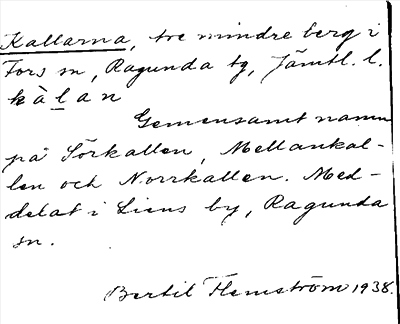 Kallarna, tre mindre berg i
Fors sn, Ragunda tg, Jämtl. l.
kàlan
Gemensamt namn
på Sörkallen, Mellankal-
len och Norrkallen. Med-
delat i Liens by, Ragunda
sn.
Bertil Flemström 1938.